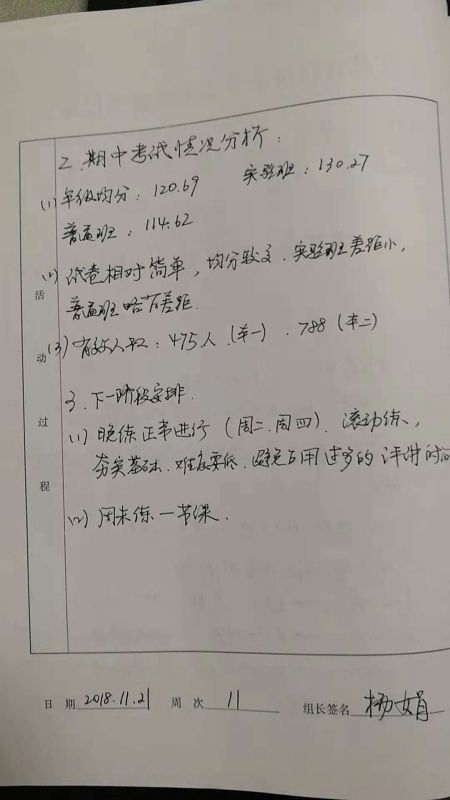 2. 期中考试情况分析:
(1) 年级均分: 120.69 实验班: 130.27
普通班: 114.62
(2) 试卷相对简单, 均分较高. 实验班差距小,
普通班略有差距.
(3) 有效人数: 475人 (本一). 788 (本二)
3. 下一阶段安排.
(1) 晚练正常进行 (周二. 周四). 滚动练、
夯实基础. 难度要低. 避免占用过多的评讲时间
(2) 周末练一节课.
活动过程
日期 2018.11.21 周次 11 组长签名 杨娟